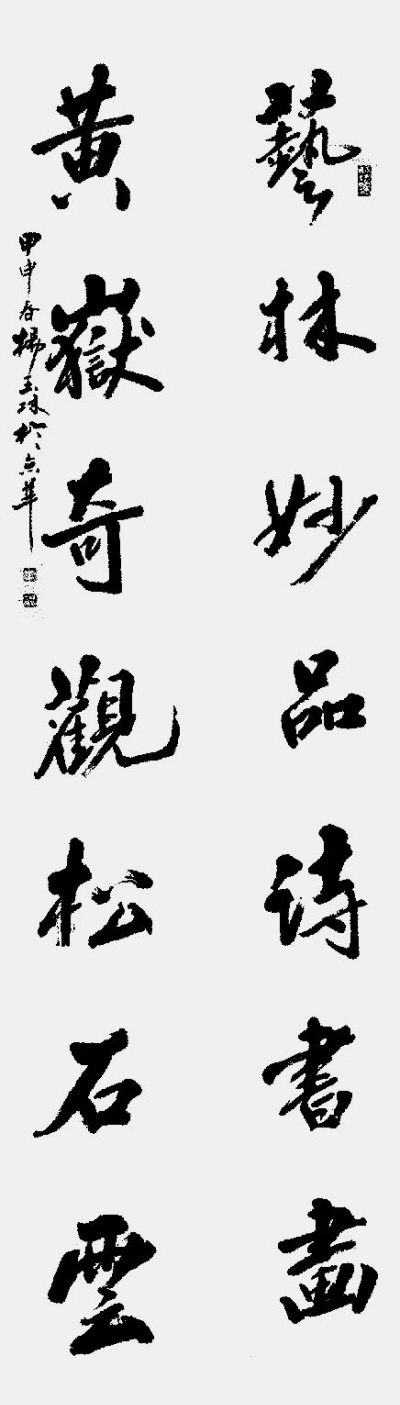 藝林妙品诗書畫
黃嶽奇觀松石雲
甲申春楊玉琳於京華